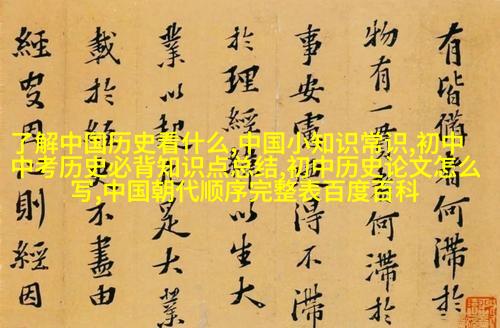 了解中国历史看什么,中国小知识常识,初中
中考历史必背知识点总结,初中历史论文怎么
写,中国朝代顺序完整表百度百科
有皆備何滯於
物有一何滯於
事安得不滯
於理經以生大
業以是大業
載於不盡由
經則經因